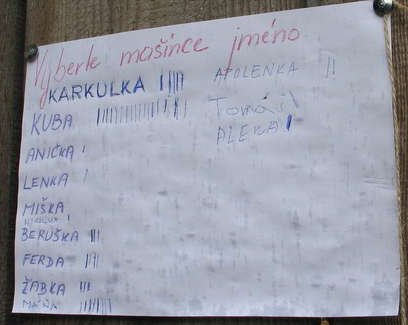 Vyberte mašince jméno
KARKULKA
KUBA
ANIČKA
LENKA
MIŠKA
BERUŠKA
FERDA
ŽABKA
MÁŇA
APOLENKA
Tomáš